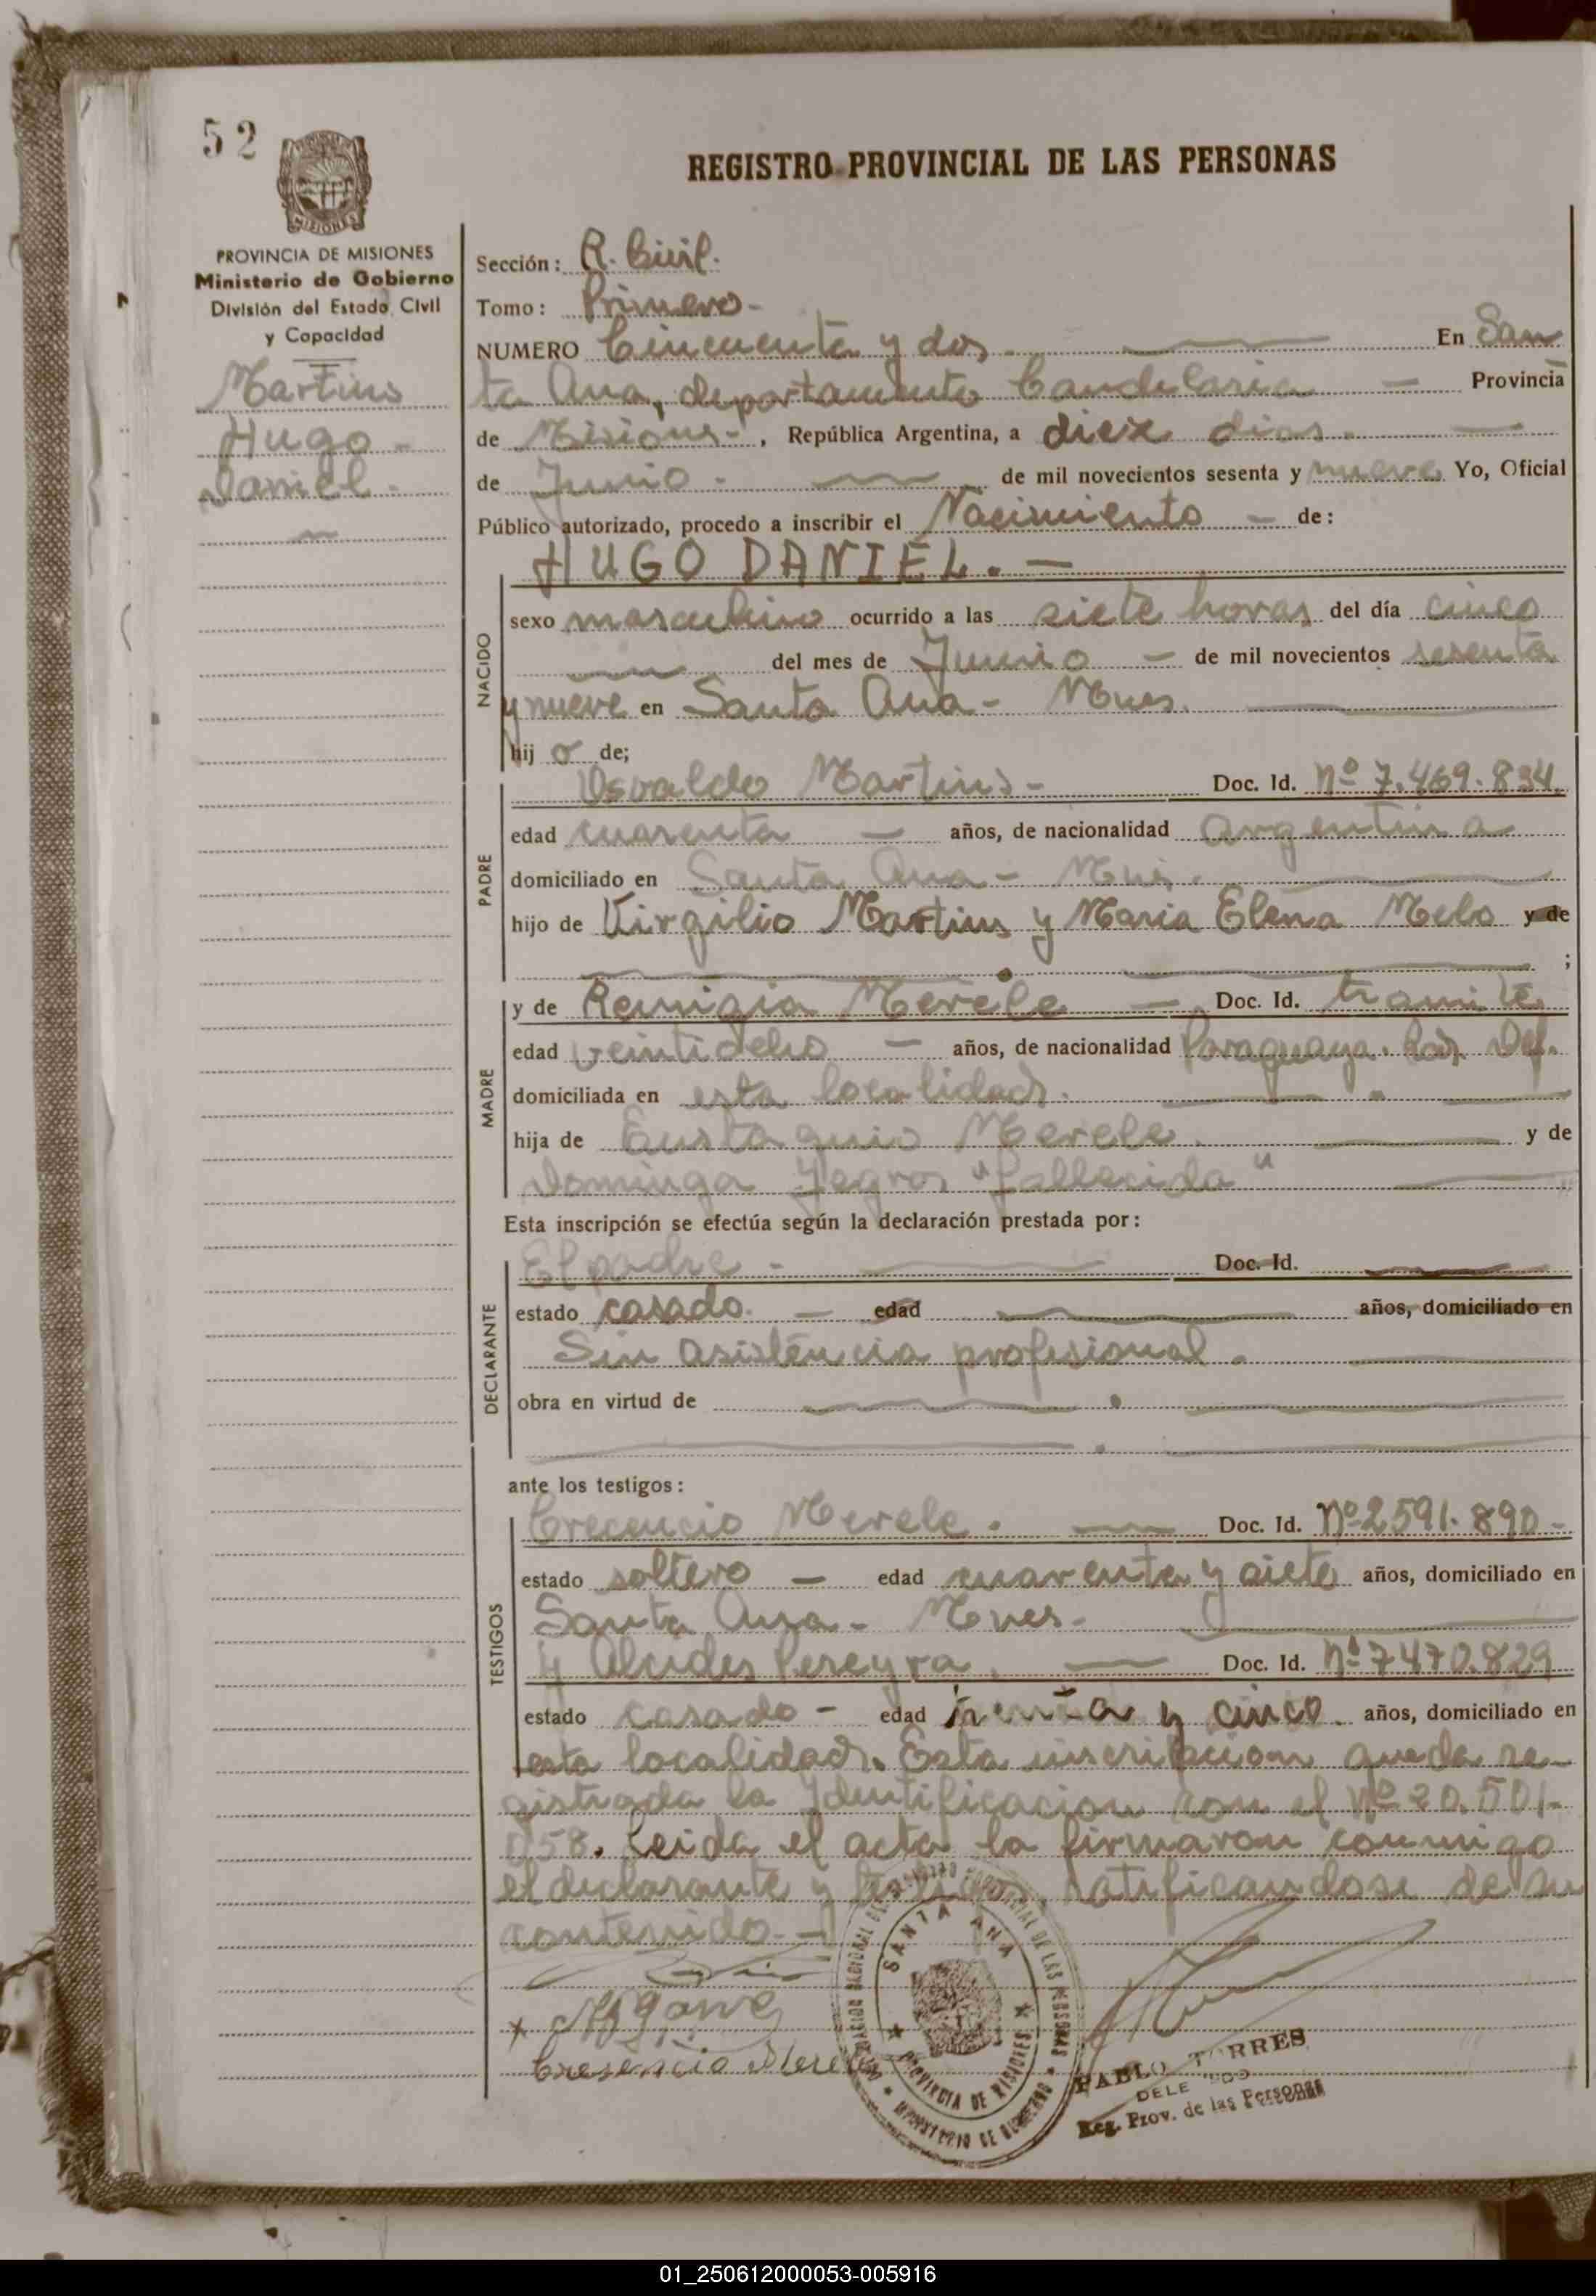 52
MISIONES
PROVINCIA DE MISIONES
Ministerio de Gobierno
División del Estado Civil
y Capacidad
Martins
Hugo -
Daniel -
REGISTRO PROVINCIAL DE LAS PERSONAS
Sección: R. Civil.
Tomo: Primero -
NUMERO Cincuenta y dos. En San
ta Ana, departamento Candelaria - Provincia
de Misiones -, República Argentina, a diez dias. -
de Junio - de mil novecientos sesenta y nueve Yo, Oficial
Público autorizado, procedo a inscribir el Nacimiento - de:
HUGO DANIEL. -
NACIDO
sexo masculino ocurrido a las siete horas del día cinco
del mes de Junio - de mil novecientos sesenta
y nueve en Santa Ana - Mnes.
hij o de;
PADRE
Osvaldo Martins - Doc. Id. Nº 7.469.834.
edad cuarenta - años, de nacionalidad argentina
domiciliado en Santa Ana - Mnes.
hijo de Virgilio Martins y Maria Elena Melo y de
;
MADRE
y de Remigia Merele - Doc. Id. tramite
edad veintiocho - años, de nacionalidad Paraguaya. Def.
domiciliada en esta localidad.
hija de Eustaquio Merele. y de
Dominga Yegros "fallecida"
Esta inscripción se efectúa según la declaración prestada por:
DECLARANTE
El padre - Doc. Id.
estado casado. - edad años, domiciliado en
Sin asistencia profesional.
obra en virtud de
ante los testigos:
TESTIGOS
Crecencio Merele. Doc. Id. Nº 2591.890 -
estado soltero - edad cuarenta y siete años, domiciliado en
Santa Ana - Mnes -
y Alcides Pereyra. Doc. Id. Nº 7470.829
estado casado - edad treinta y cinco. años, domiciliado en
esta localidad. Esta inscripcion queda re-
gistrada la Identificacion con el Nº 20.501.
058. Leida el acta la firmaron conmigo
el declarante y testigos, ratificandose de su
contenido. -
SANTA ANA
PROVINCIA DE MISIONES
MINISTERIO DE GOBIERNO
Cresencio Merele
PABLO TORRES
Reg. Prov. de las Personas
01_250612000053-005916